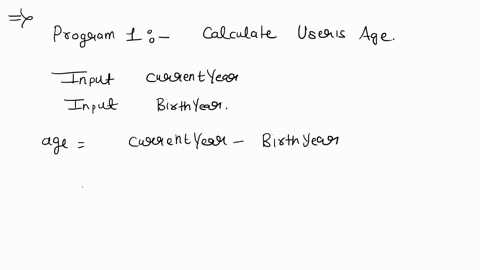 => Program 1 :- Calculate Useris Age.
Input CurrentYear
Input BirthYear.
age = CurrentYear - BirthYear